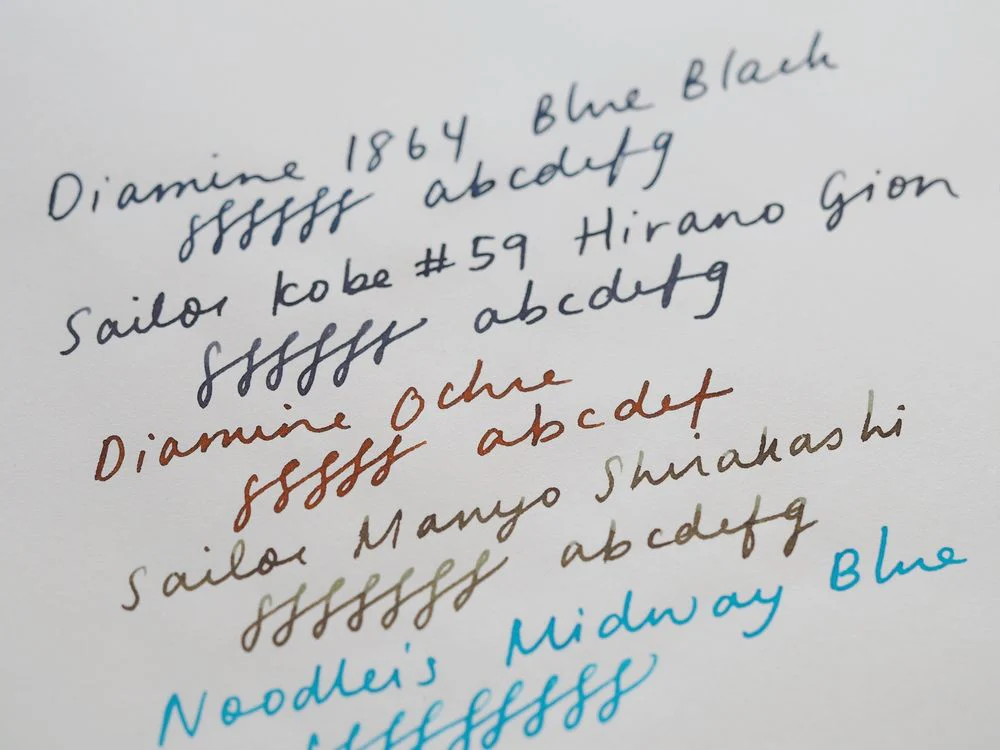 Diamine 1864 Blue Black
ffffff abcdefg
Sailor Kobe #59 Hirano Gion
ffffff abcdefg
Diamine Ochre
fffff abcdef
Sailor Manyo Shirakashi
fffffff abcdefg
Noodler's Midway Blue